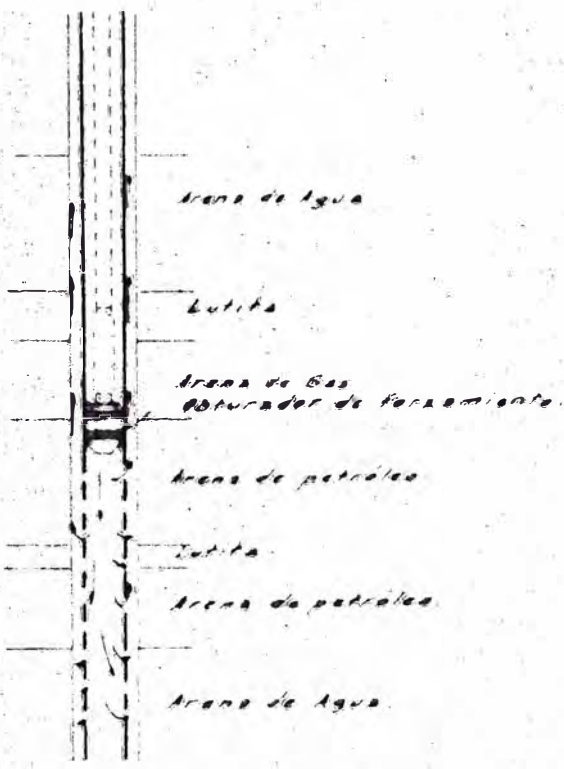 Arena de Agua
Lutita
Arena de Gas
Obturador de forzamiento.
Arena de petróleo
Lutita
Arena de petróleo.
Arena de Agua.